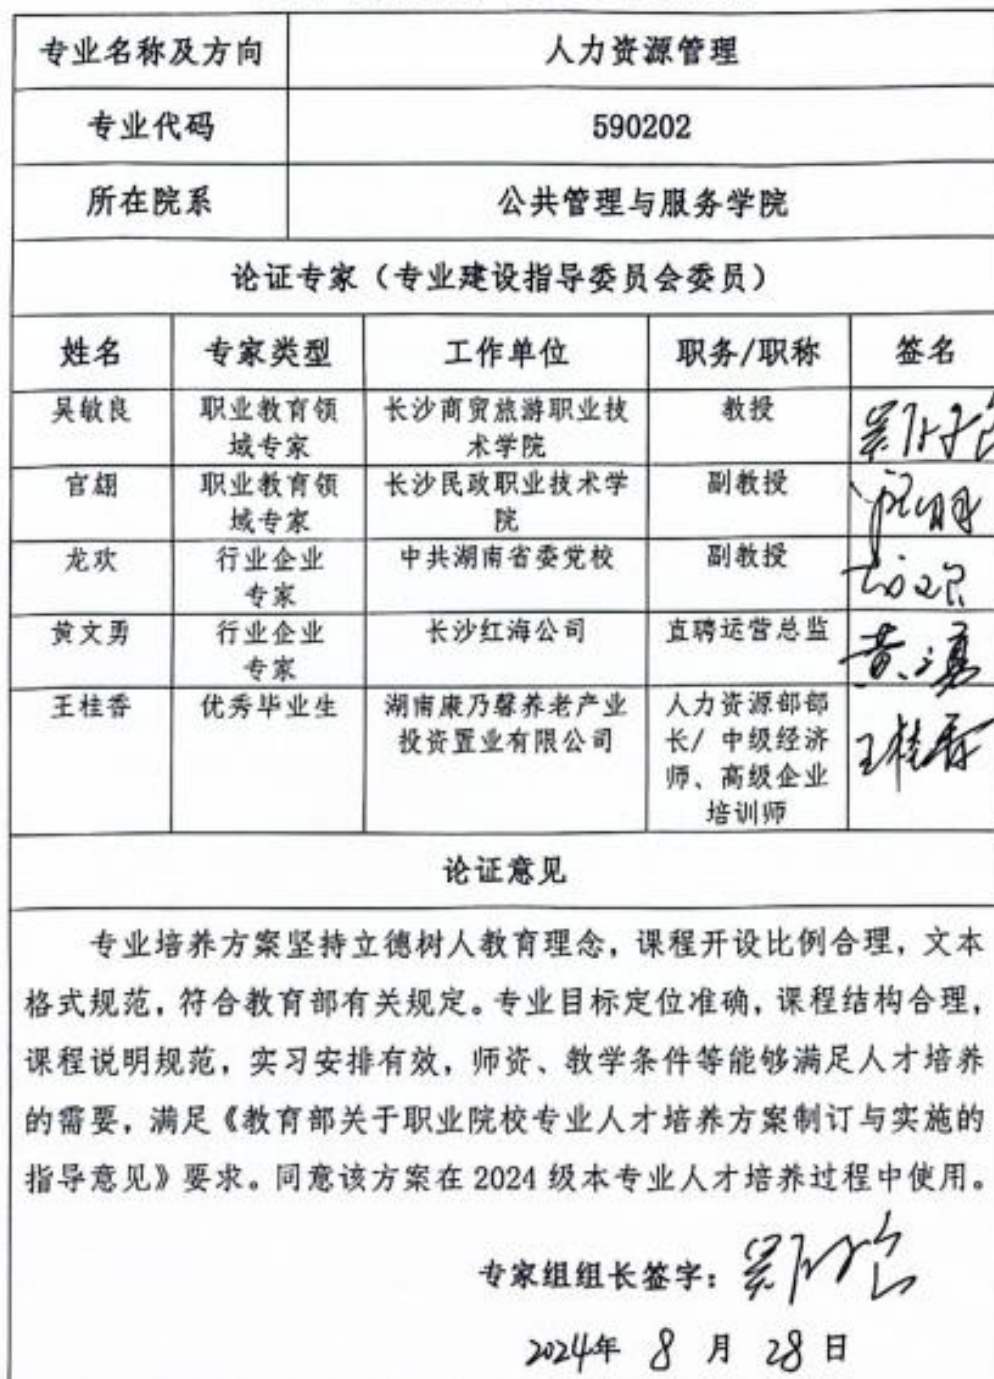 专业名称及方向 人力资源管理
专业代码 590202
所在院系 公共管理与服务学院
论证专家（专业建设指导委员会委员）
姓名 专家类型 工作单位 职务/职称 签名
吴敏良 职业教育领 长沙商贸旅游职业技 教授
域专家 术学院
官翃 职业教育领 长沙民政职业技术学 副教授
域专家 院
龙欢 行业企业 中共湖南省委党校 副教授
专家
黄文勇 行业企业 长沙红海公司 直聘运营总监 黄文勇
专家
王桂香 优秀毕业生 湖南康乃馨养老产业 人力资源部部 王桂香
投资置业有限公司 长/ 中级经济
师、高级企业
培训师
论证意见
专业培养方案坚持立德树人教育理念，课程开设比例合理，文本
格式规范，符合教育部有关规定。专业目标定位准确，课程结构合理，
课程说明规范，实习安排有效，师资、教学条件等能够满足人才培养
的需要，满足《教育部关于职业院校专业人才培养方案制订与实施的
指导意见》要求。同意该方案在 2024 级本专业人才培养过程中使用。
专家组组长签字：
2024年 8 月 28 日